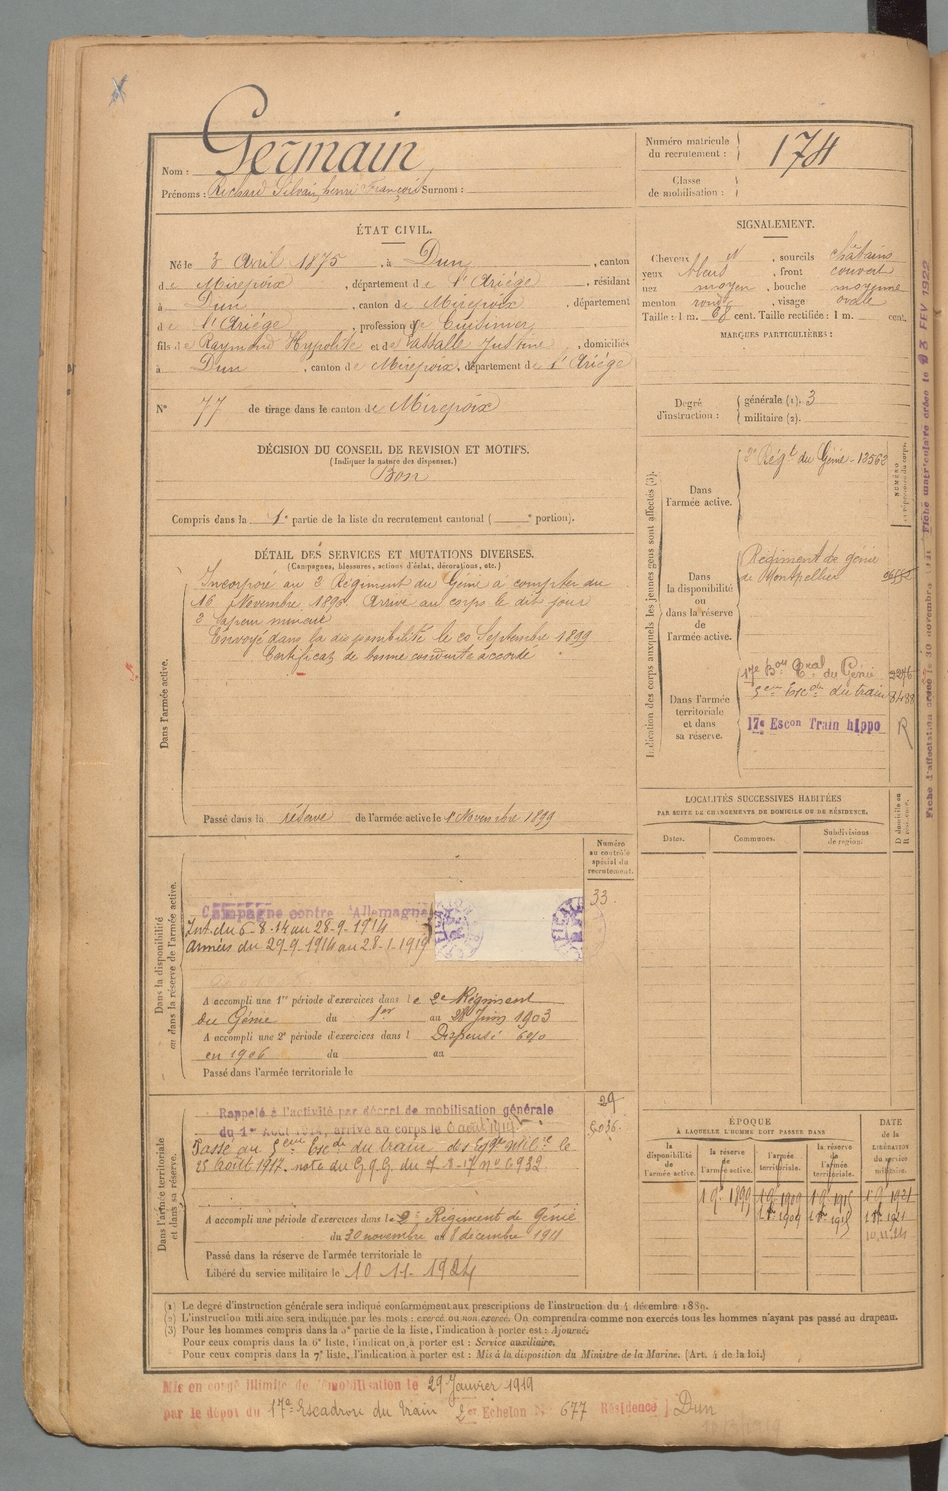 Germain
Nom :
Prénoms : Richard Silvain, henri François Surnom :
Numéro matricule
du recrutement : 174
Classe
de mobilisation :
ÉTAT CIVIL.
Né le 3 Avril 1875, à Dun, canton
de Mirepoix, département de l'Ariège, résidant
à Dun, canton de Mirepoix, département
de l'Ariège, profession de Cuisinier
fils de Raymond Hypolite et de Vassalle Justine, domiciliés
à Dun, canton de Mirepoix, département de l'Ariège
N° 77 de tirage dans le canton de Mirepoix
DÉCISION DU CONSEIL DE REVISION ET MOTIFS.
(Indiquer la nature des dispenses.)
Bon
Compris dans la 1e partie de la liste du recrutement cantonal ( e portion).
SIGNALEMENT.
Cheveux N, sourcils châtains
yeux bleus, front couvert
nez moyen, bouche moyenne
menton rond, visage ovale
Taille : 1 m. 68 cent. Taille rectifiée : 1 m. cent.
MARQUES PARTICULIÈRES :
Degré
d'instruction :
générale (1). 3
militaire (2).
DÉTAIL DES SERVICES ET MUTATIONS DIVERSES.
(Campagnes, blessures, actions d'éclat, décorations, etc.)
Dans l'armée active.
Incorporé au 2 Régiment du Génie à compter du
16 Novembre 1896. Arrivé au corps le dit jour
2 Sapeur mineur
Envoyé dans la disponibilité le 20 Septembre 1899
Certificat de bonne conduite accordé
Passé dans la réserve de l'armée active le 1 Novembre 1899
Indication des corps auxquels les jeunes gens sont affectés (3).
NUMÉRO
Dans
l'armée active.
2e Régt du Génie - 13562
Dans
la disponibilité
ou
dans la réserve
de
l'armée active.
Régiment de génie
de Montpellier
Dans l'armée
territoriale
et dans
sa réserve.
17e Bon Tral du Génie
5eme Escon du train
17e Escon Train hippo R
LOCALITÉS SUCCESSIVES HABITÉES
PAR SUITE DE CHANGEMENTS DE DOMICILE OU DE RÉSIDENCE.
Dates.
Communes.
Subdivisions
de région.
D domicile ou
R résidence.
Numéro
au contrôle
spécial du
recrutement.
33
Dans la disponibilité
ou dans la réserve de l'armée active.
Campagne contre l'Allemagne
Int. du 6-8-14 au 28-9-1914
Armées du 29-9-1914 au 28-1-1919
A accompli une 1re période d'exercices dans le 2e Régiment
du Génie du 1er au 28 Juin 1903
A accompli une 2e période d'exercices dans l Dispensé 6%
en 1906 du au
Passé dans l'armée territoriale le
Dans l'armée territoriale
et dans sa réserve.
29
Rappelé à l'activité par décret de mobilisation générale
du 1er Août 1914, arrivé au corps le 6 août 1914
Passé au 5eme Escon du train des Eq. Mil. le
25 août 1917. note du G Q G du 7-8-17 no 6932
A accompli une période d'exercices dans le 2e Régiment de Génie
du 30 novembre au 8 decembre 1911
Passé dans la réserve de l'armée territoriale le
Libéré du service militaire le 10 11 1924
ÉPOQUE
À LAQUELLE L'HOMME DOIT PASSER DANS
DATE
de la
LIBÉRATION
du service
militaire.
la
disponibilité
de
l'armée active.
la réserve
de
l'armée active.
l'armée
territoriale.
la réserve
de
l'armée
territoriale.
1 9 1899
1 9 1909
1 9 1915
1 9 1921
10.11.24
(1) Le degré d'instruction générale sera indiqué conformément aux prescriptions de l'instruction du 4 décembre 1889.
(2) L'instruction militaire sera indiquée par les mots : exercé ou non exercé. On comprendra comme non exercés tous les hommes n'ayant pas passé au drapeau.
(3) Pour les hommes compris dans la 5e partie de la liste, l'indication à porter est : Ajourné.
Pour ceux compris dans la 6e liste, l'indication à porter est : Service auxiliaire.
Pour ceux compris dans la 7e liste, l'indication à porter est : Mis à la disposition du Ministre de la Marine. (Art. 4 de la loi.)
Mis en congé illimité de démobilisation le 29 Janvier 1919
par le dépôt du 17e Escadron du train 2er Echelon N° 677 Résidence Dun
Fiche matriculaire créée le 23 FEV 1922